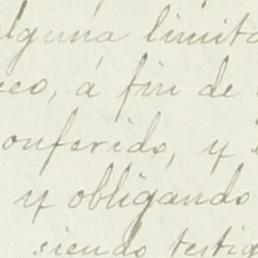 alguna limita
eo, á fin de
onferido, y
y obligando
siendo testig